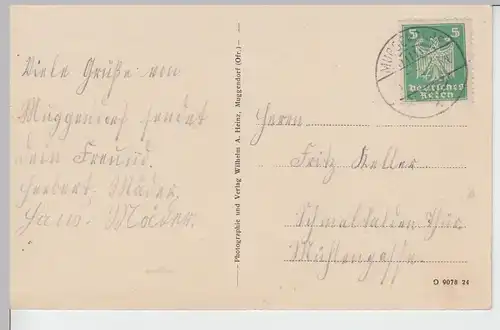 Viele Grüße von
Muggendorf sendet
dein Freund.
Herbert Mäder.
Hans Moder.
Photographie und Verlag Wilhelm A. Heinz, Muggendorf (Ofr.)
5 5
Deutsches
Reich
Herrn
Fritz Keller
Schmalkalden Thür.
Mühlengasse.
D 9078 24